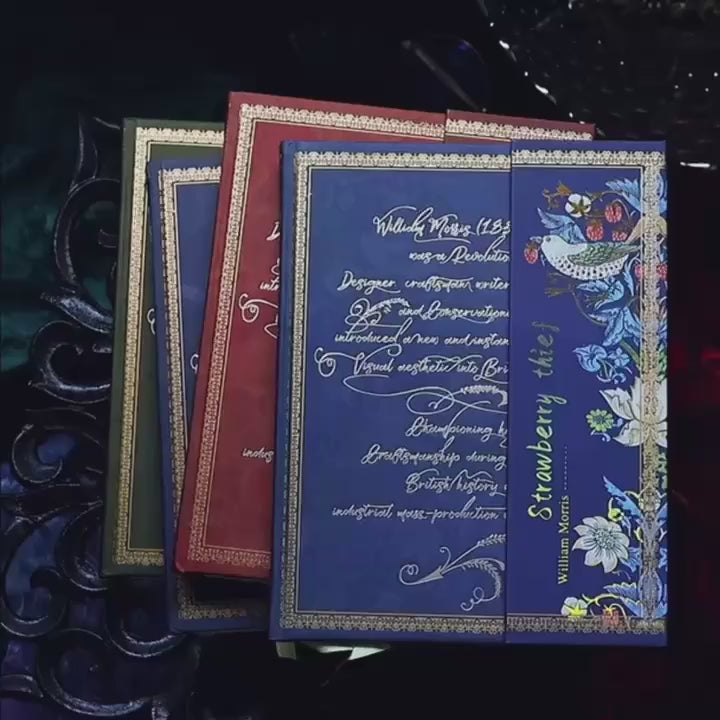 William Morris (183
was a Revolutio
Designer craftsman writer
and Conservation
introduced a new and instan
Visual aesthetic into Bri
Championing h
Craftsmanship during
British history
industrial mass-production
Strawberry thief
William Morris ........
indus